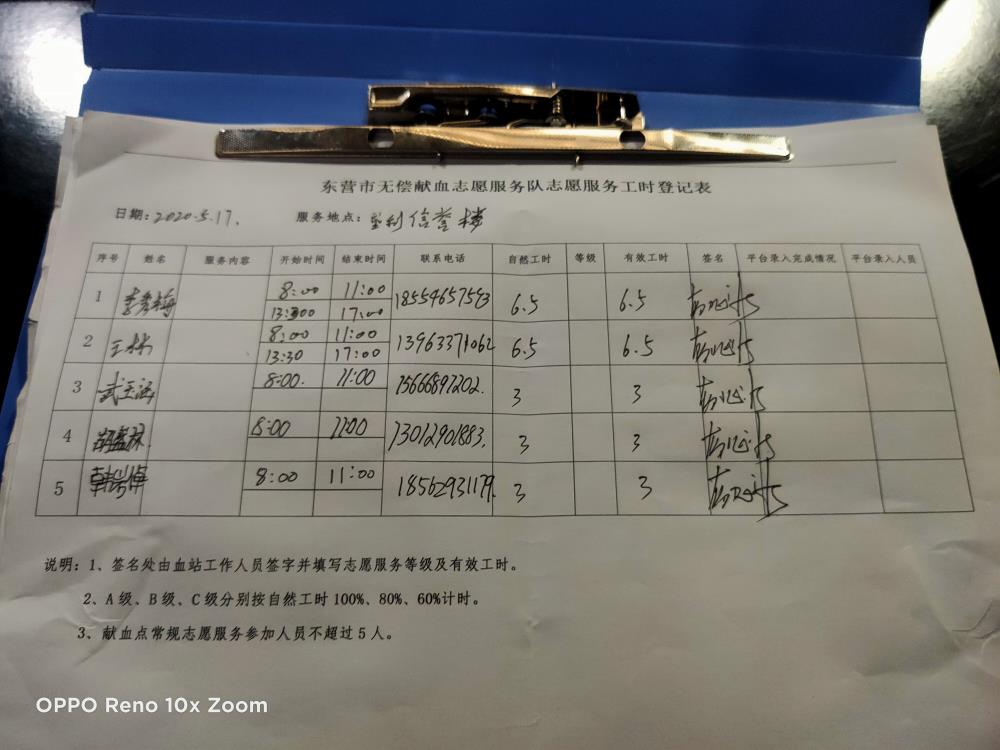 东营市无偿献血志愿服务队志愿服务工时登记表
日期:2020.5.17. 服务地点:垦利信誉楼
序号 姓名 服务内容 开始时间 结束时间 联系电话 自然工时 等级 有效工时 签名 平台录入完成情况 平台录入人员
1 李秀梅 8:00 11:00 18554657593 6.5 6.5
13:300 17:00
2 王林 8:00 11:00 13963371062 6.5 6.5
13:30 17:00
3 8:00. 11:00 15666897202. 3 3
4 8:00 11:00 13012901883. 3 3
5 8:00 11:00 18562931179. 3 3
说明:1、签名处由血站工作人员签字并填写志愿服务等级及有效工时。
2、A级、B级、C级分别按自然工时100%、80%、60%计时。
3、献血点常规志愿服务参加人员不超过5人。
OPPO Reno 10x Zoom